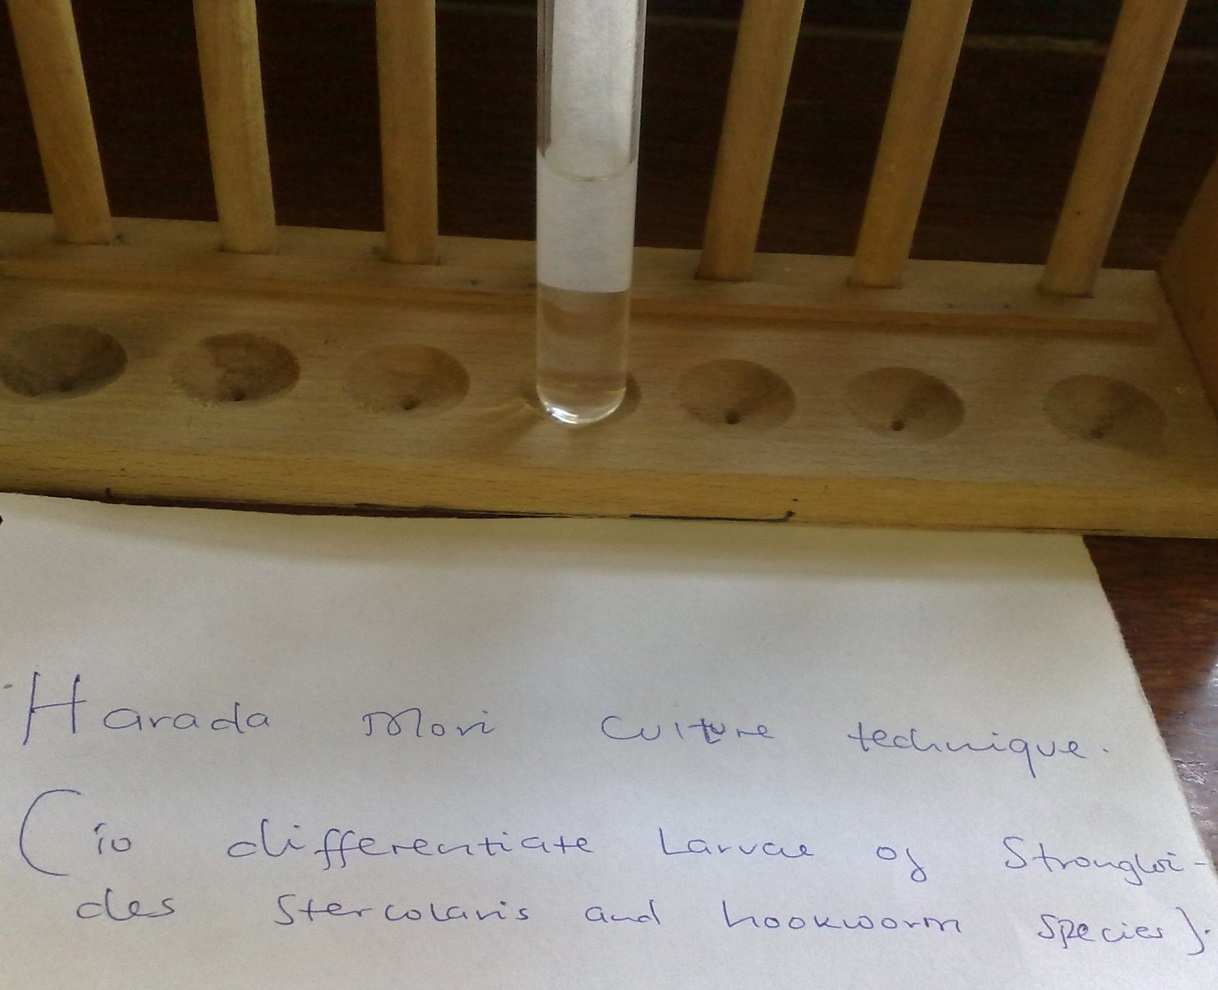 Harada Mori Culture technique.
(io differentiate Larvae of Strongloi-
des Stercolaris and hookworm species).